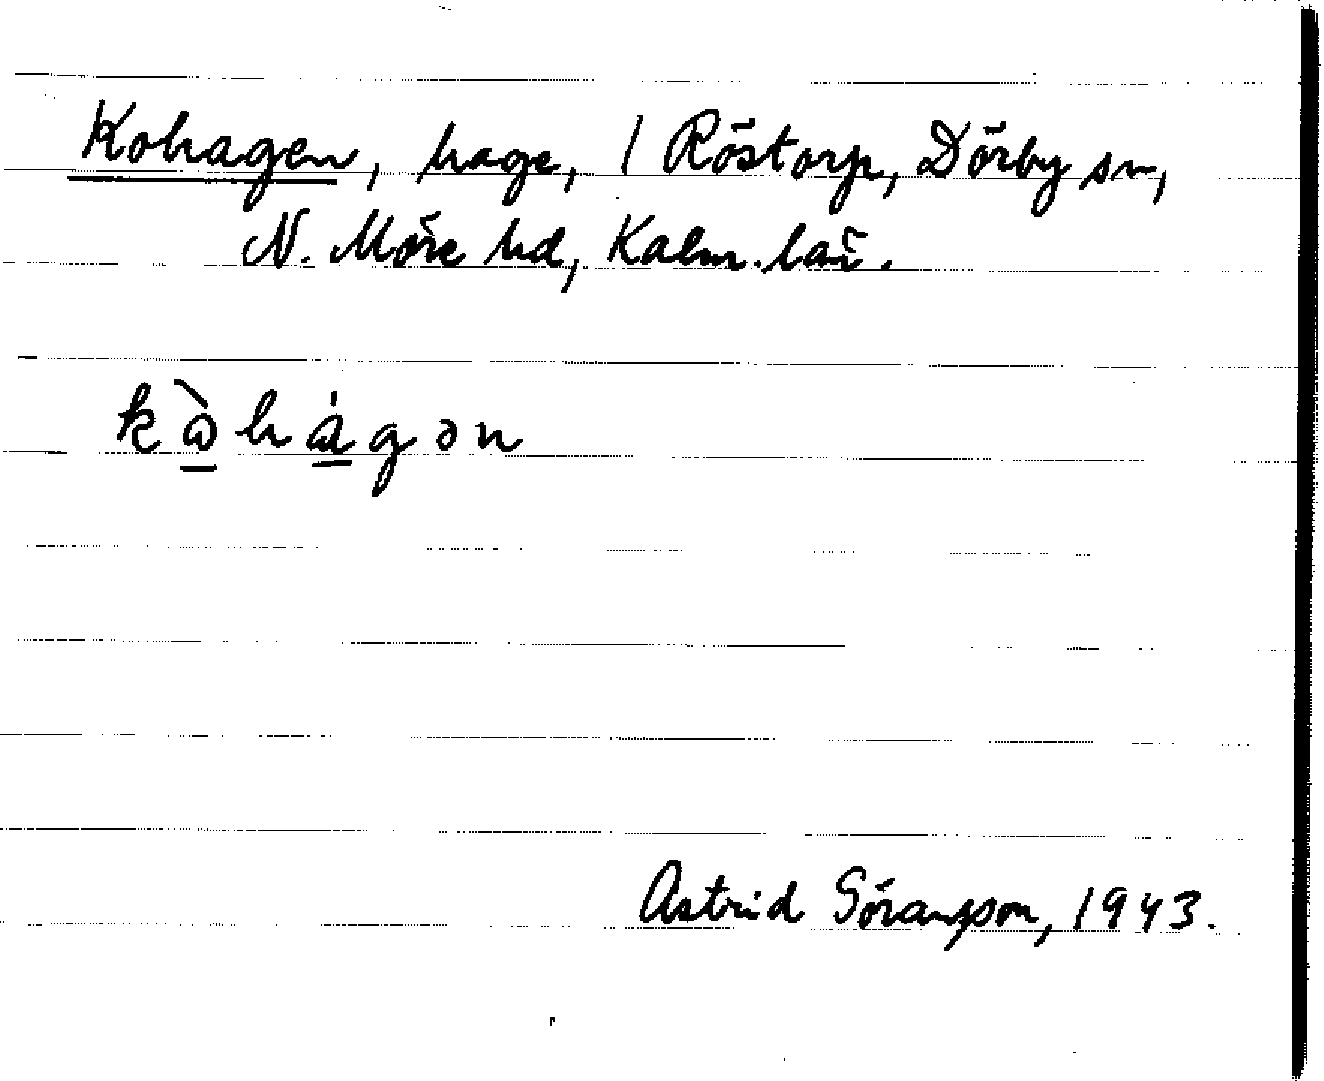 Kohagen, hage, 1 Röstorp, Dörby sn,
N. Möre hd, Kalm. län.
kὼhágən
Astrid Göransson, 1943.